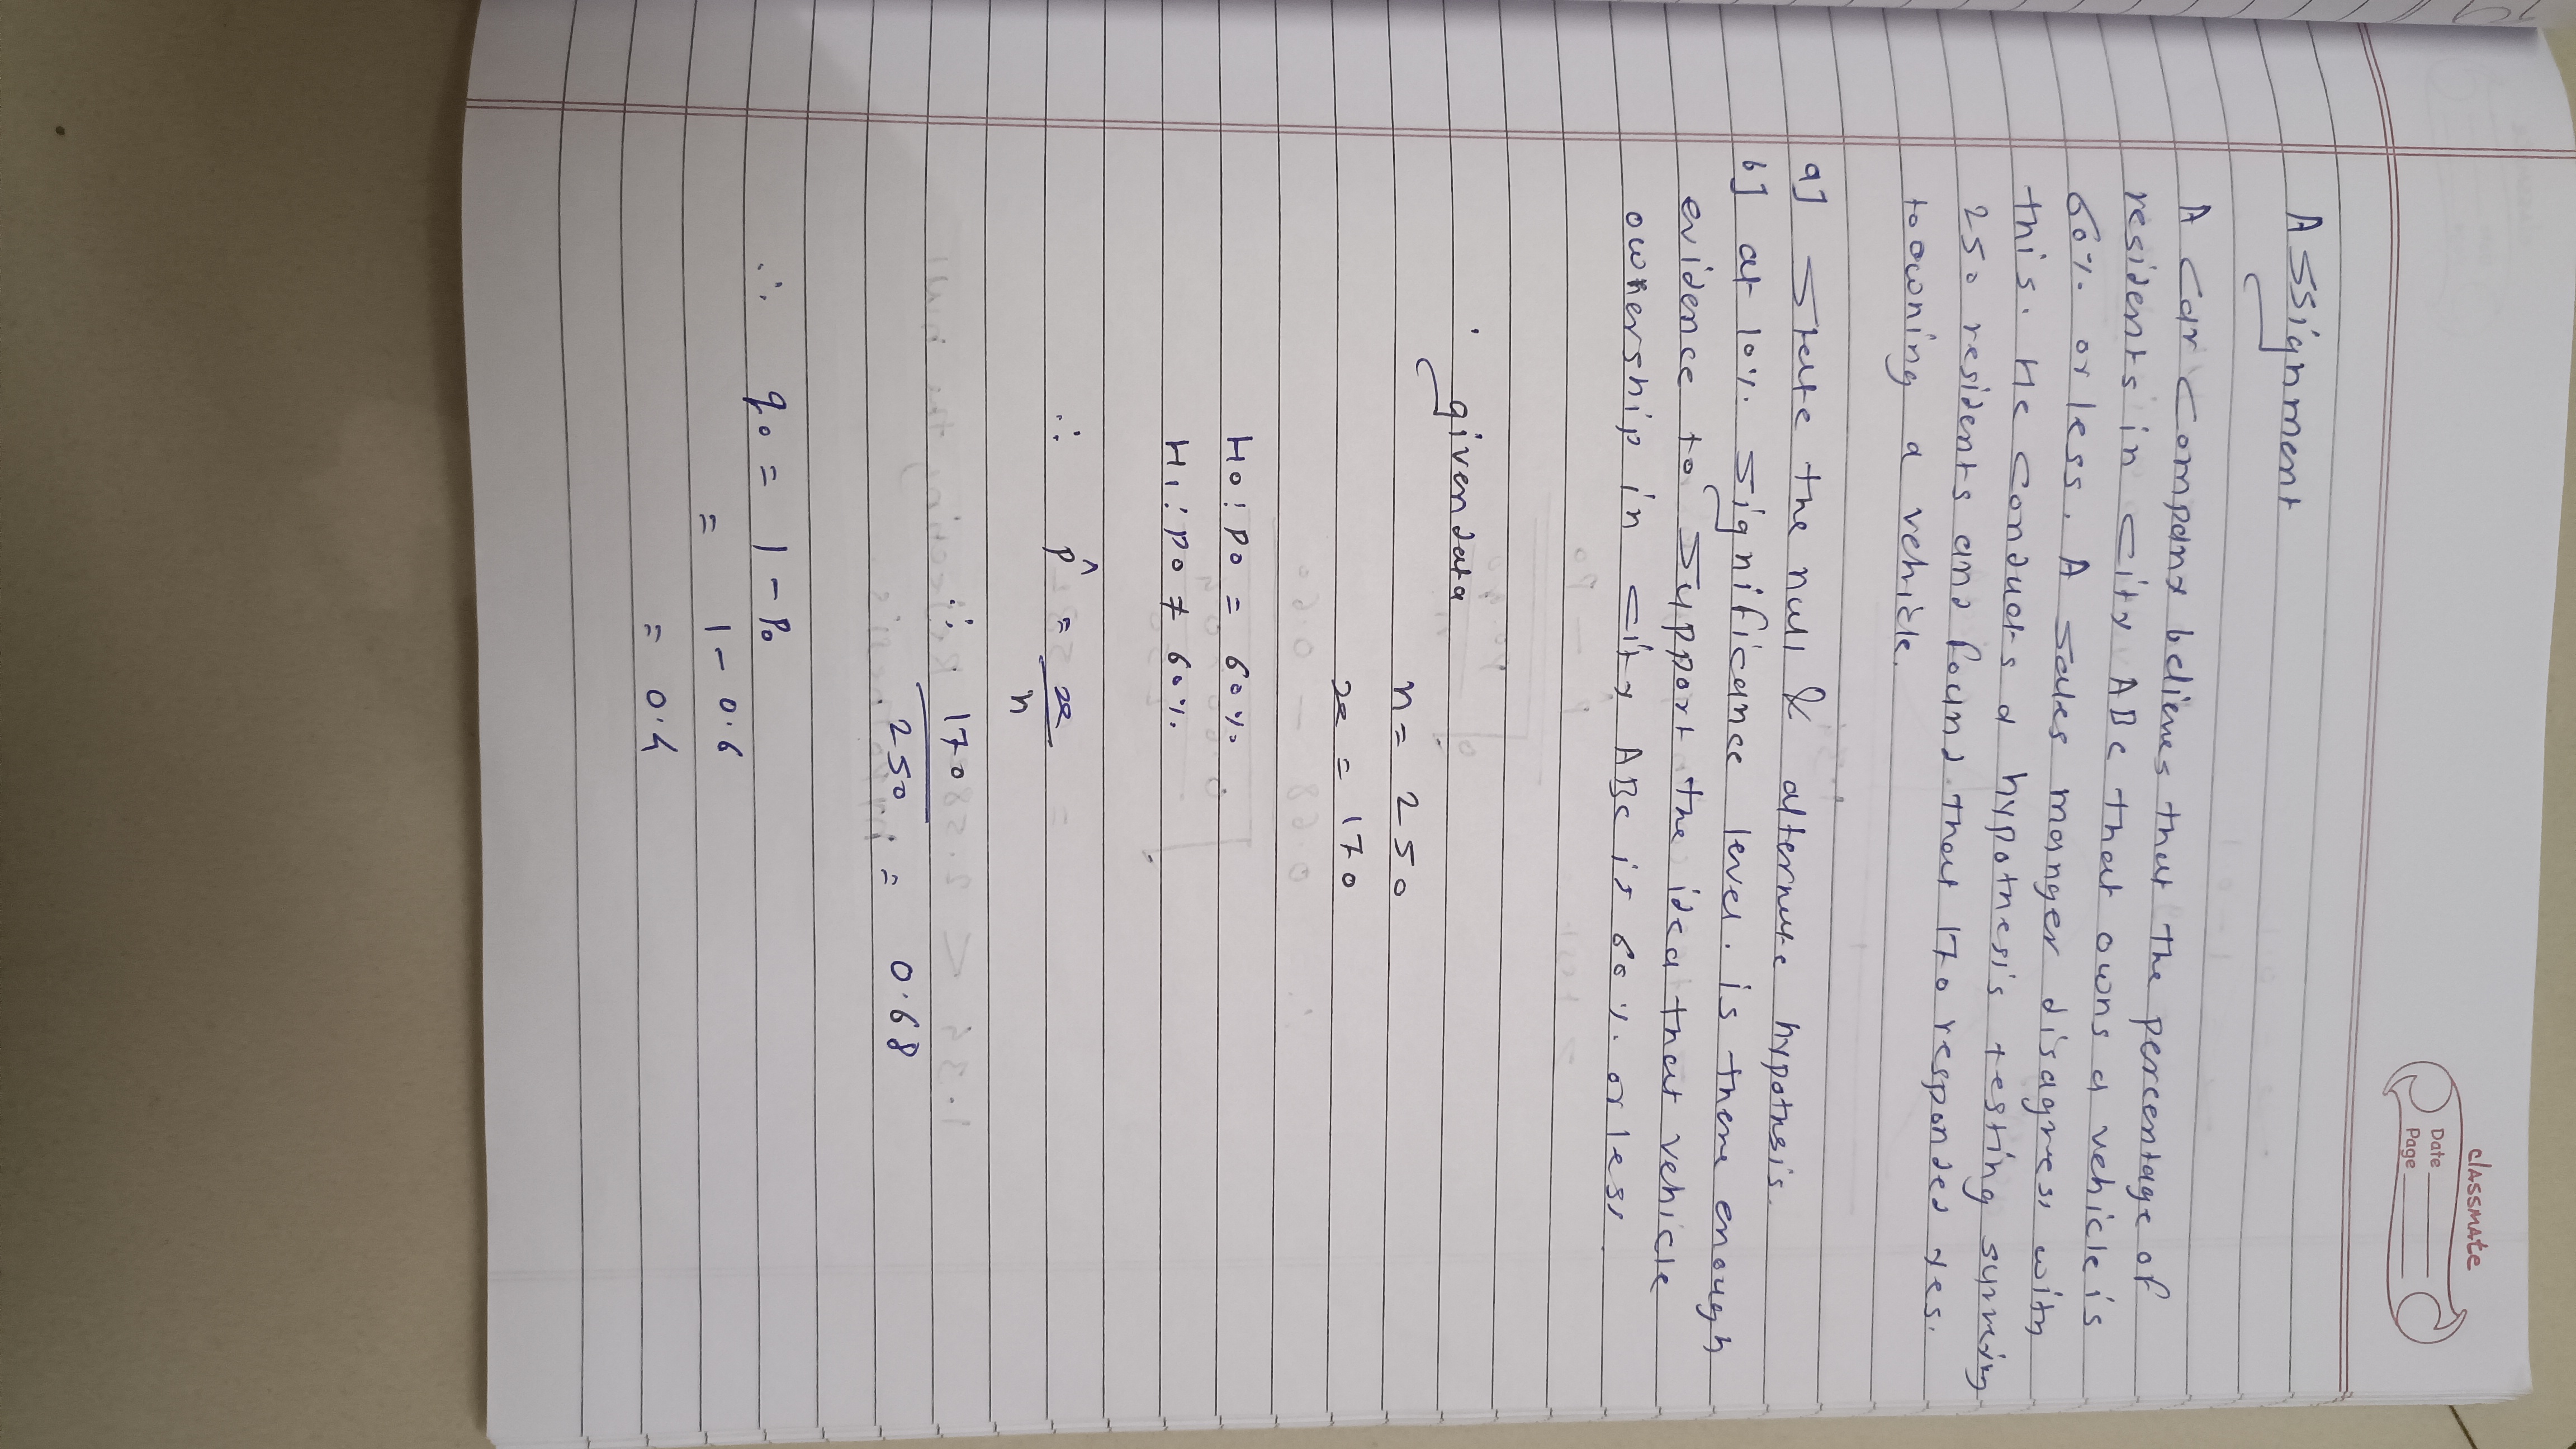 classmate
Date
Page
Assignment
A Car Company believes that the percentage of
residents in city ABC that owns a vehicle is
60% or less. A sales manger disagress with
this. He conducts a hypothesis testing surveing
250 residents and found that 170 responded yes.
to owning a vehicle.
a] State the null & alternate hypothsis.
b] at 10% significance level. is there enough
evidence to support the idea that vehicle
ownership in city ABC is 60% or less.
given data
n = 250
x = 170
H0: P0 = 60%
H1: P0 ≠ 60%
∴ p̂ = x
n
∴ 170
250 = 0.68
∴ q0 = 1 - P0
= 1 - 0.6
= 0.4